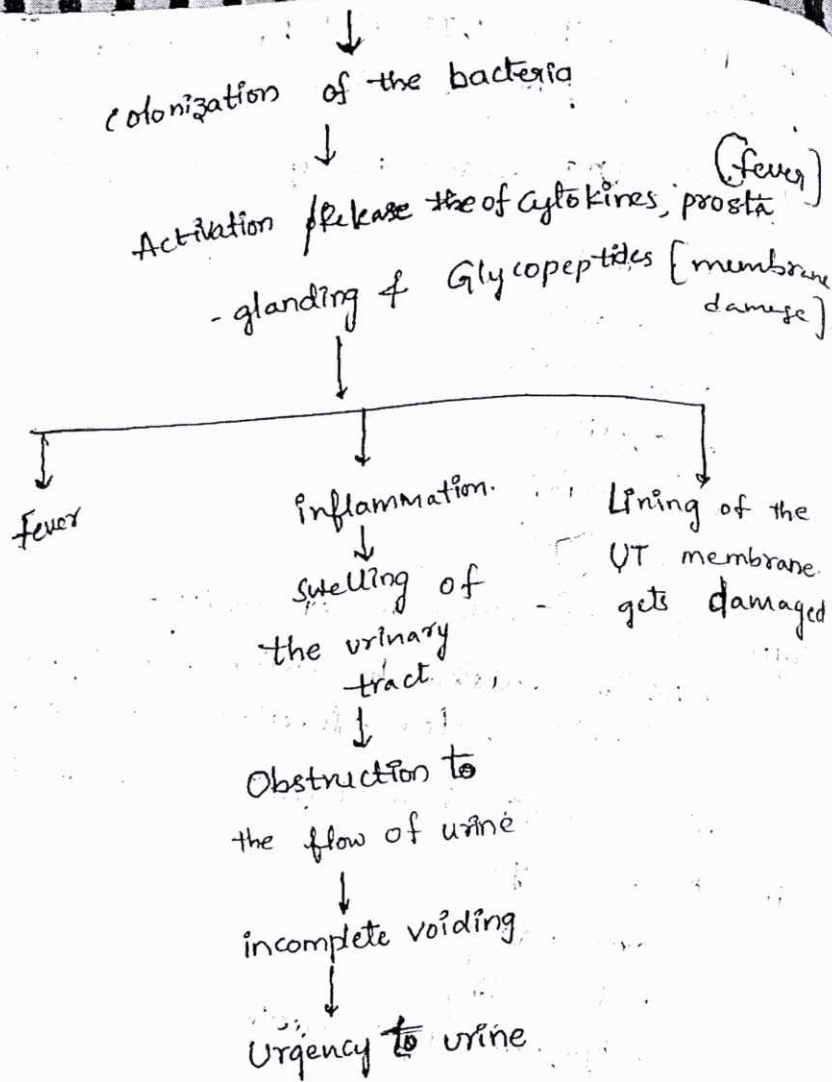 Colonization of the bacteria
(fever]
Activation / Release the of Cytokines, prosta
- glanding & Glycopeptides [membrane
damage]
fever
inflammation.
Swelling of
the urinary
tract
Obstruction to
the flow of urine
incomplete voiding
Urgency to urine
Lining of the
UT membrane
gets damaged